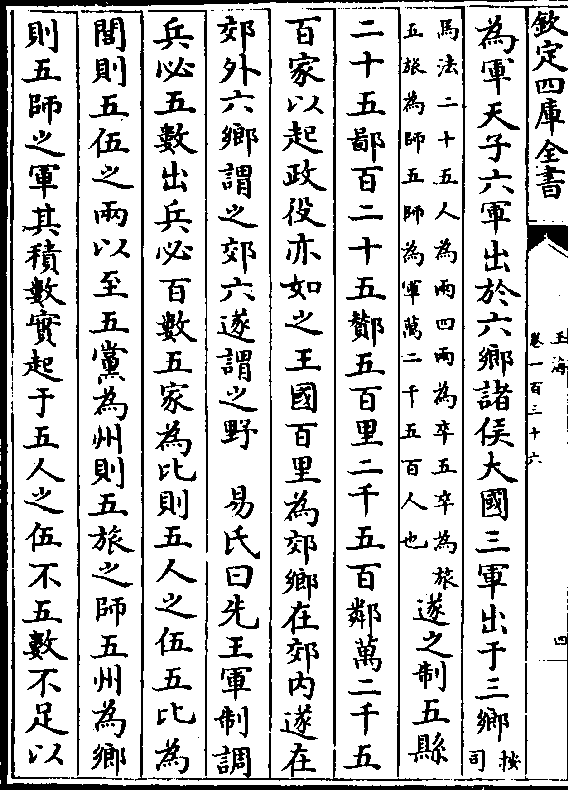 欽定四庫全書
玉海
卷一百三十六
四
為軍天子六軍出於六鄉諸侯大國三軍出于三鄉按司
馬法二十五人為兩四兩為卒五卒為旅
五旅為師五師為軍萬二千五百人也
遂之制五縣
二十五鄙百二十五酇五百里二千五百鄰萬二千五
百家以起政役亦如之王國百里為郊鄉在郊内遂在
郊外六鄉謂之郊六遂謂之野　易氏曰先王軍制調
兵必五數出兵必百數五家為比則五人之伍五比為
閭則五伍之兩以至五黨為州則五旅之師五州為鄉
則五師之軍其積數實起于五人之伍不五數不足以